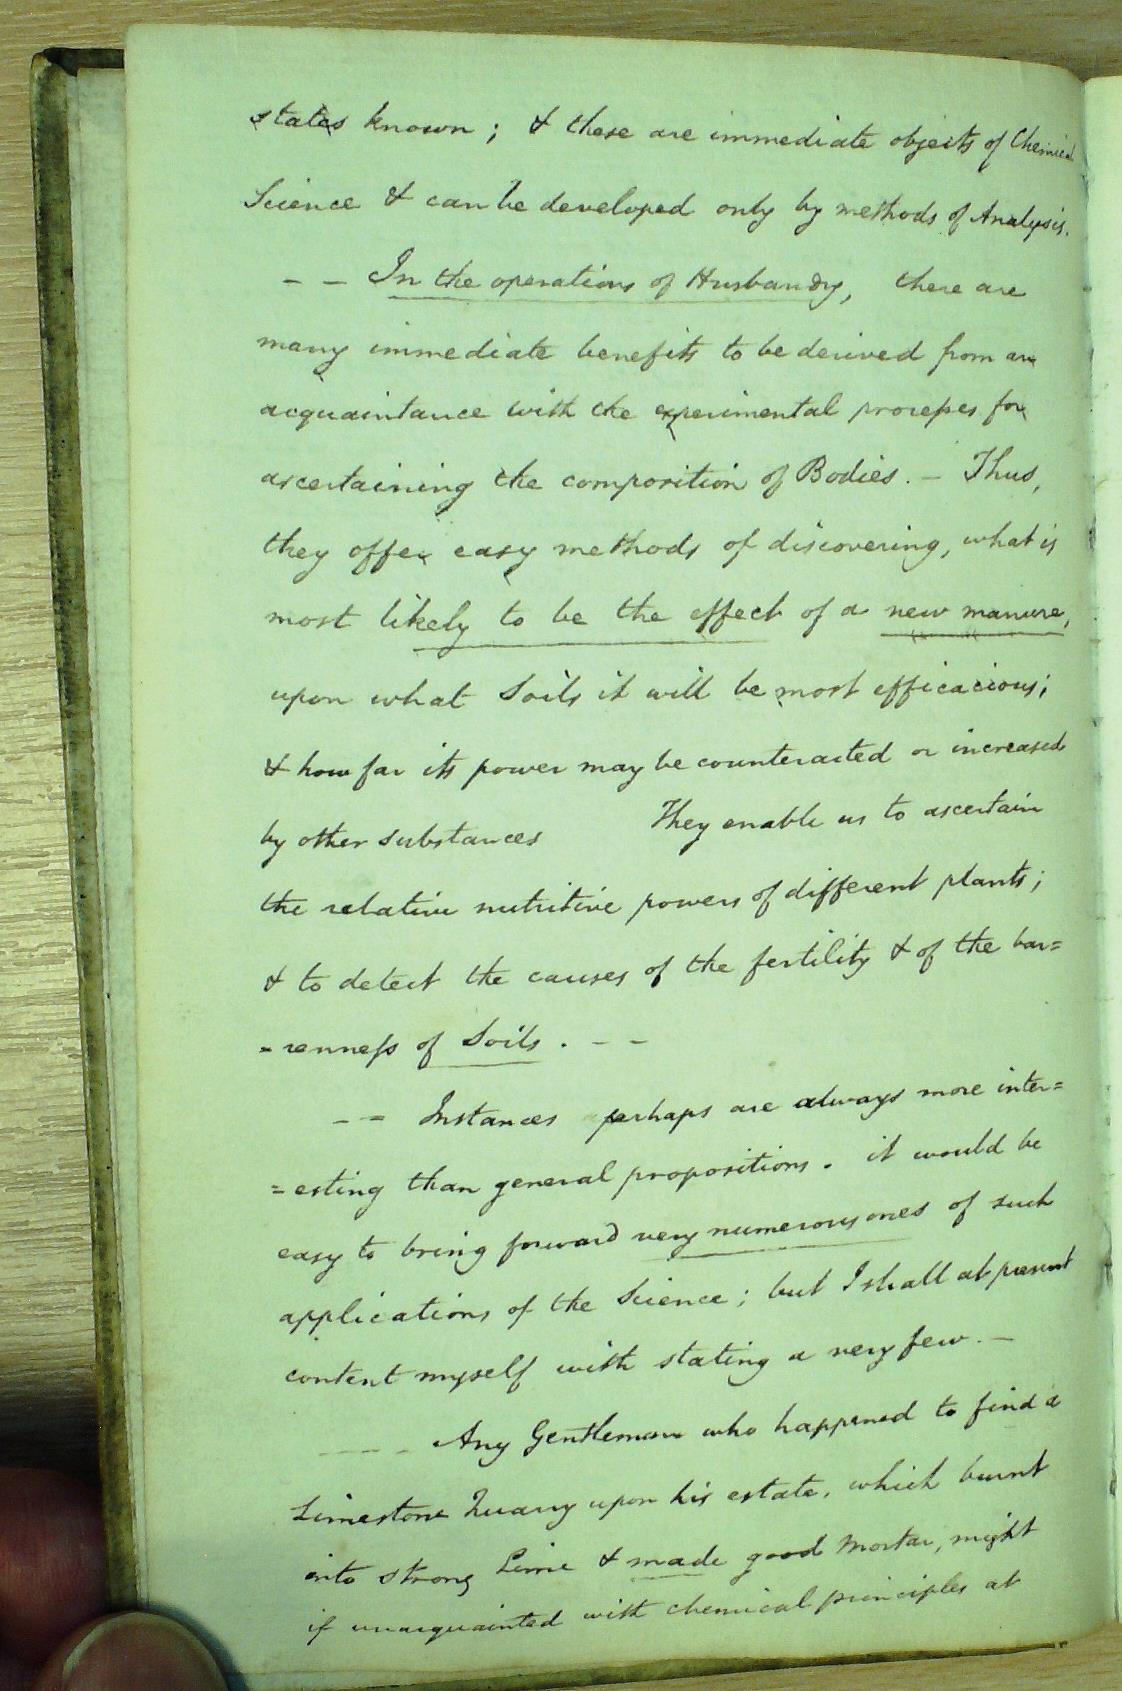 states known; & these are immediate objects of Chemical
Science & can be developed only by methods of Analysis.
– – In the operations of Husbandry, there are
many immediate benefits to be derived from an
acquaintance with the experimental processes for
ascertaining the composition of Bodies. – Thus,
they offer easy methods of discovering, what is
most likely to be the effect of a new manure,
upon what Soils it will be most efficacious;
& how far its power may be counteracted or increased
by other substances They enable us to ascertain
the relative nutritive powers of different plants;
& to detect the causes of the fertility & of the bar=
=renness of Soils. – –
– – Instances perhaps are always more inter=
=esting than general propositions. it would be
easy to bring forward very numerous ones of such
applications of the Science; but I shall at present
content myself with stating a very few. –
– – – – Any Gentleman who happened to find a
Limestone Quarry upon his estate, which burnt
into strong Lime & made good Mortar, might
if unacquainted with chemical principles at